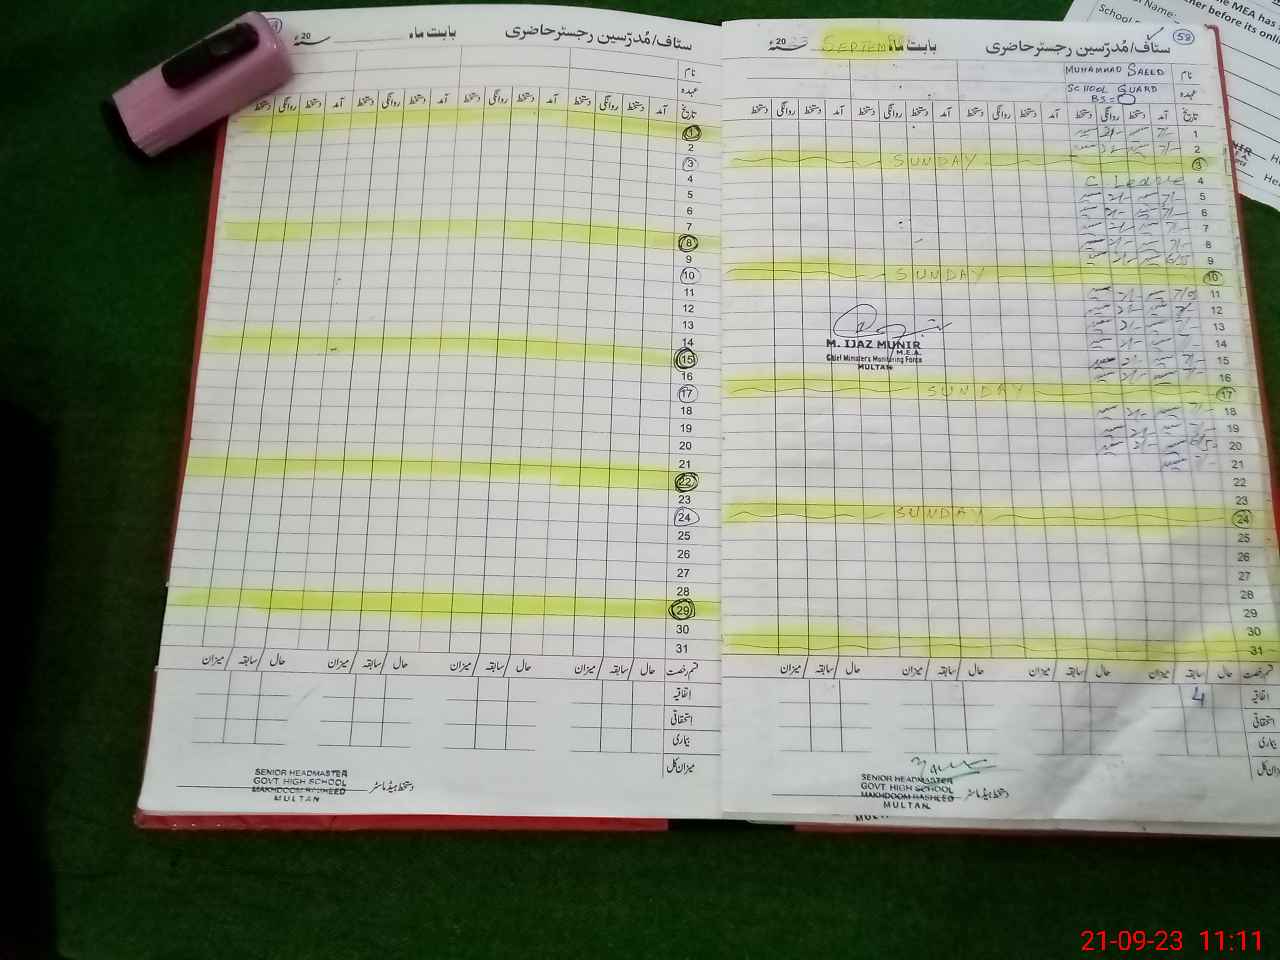 سٹاف/مُدرّسین رجسٹر حاضری بابت ماہ 20 ء
نام
عہدہ
تاریخ آمد دستخط روانگی دستخط آمد دستخط روانگی دستخط آمد دستخط روانگی دستخط آمد دستخط روانگی دستخط
1
2
3
4
5
6
7
8
9
10
11
12
13
14
15
16
17
18
19
20
21
22
23
24
25
26
27
28
29
30
31
قسم رخصت حال سابقہ میزان حال سابقہ میزان حال سابقہ میزان حال سابقہ میزان
اتفاقیہ
استحقاقی
بیماری
میزان کل
دستخط ہیڈ ماسٹر
SENIOR HEADMASTER
GOVT HIGH SCHOOL
MAKHDOOM RASHEED
MULTAN
58
سٹاف/مُدرّسین رجسٹر حاضری بابت ماہ SEPTEMBER 2023 ء
نام MUHAMMAD SAEED
عہدہ SCHOOL GUARD
BS=0
تاریخ آمد دستخط روانگی دستخط آمد دستخط روانگی دستخط آمد دستخط روانگی دستخط آمد دستخط روانگی دستخط
1 7/- 2/-
2 7/- 2/-
3 SUNDAY
4 C Leave
5 7/- 2/-
6 7/- 2/-
7 7/- 2/-
8 7/- 2/-
9 6/5 2/-
10 SUNDAY
11 7/5 2/-
12 7/- 2/-
13 7/- 2/-
14 7/- 2/-
15 7/- 2/-
16 7/- 2/-
17 SUNDAY
18 7/- 2/-
19 7/- 2/-
20 6/5- 2/-
21 7/-
22
23
24 SUNDAY
25
26
27
28
29
30
31
M. IJAZ MUNIR
M.E.A.
Chief Minister's Monitoring Force
MULTAN
قسم رخصت حال سابقہ میزان حال سابقہ میزان حال سابقہ میزان حال سابقہ میزان
اتفاقیہ 4
استحقاقی
بیماری
میزان کل
دستخط ہیڈ ماسٹر
SENIOR HEADMASTER
GOVT HIGH SCHOOL
MAKHDOOM RASHEED
MULTAN
MEA has
before its onli
Name:
School
21-09-23 11:11